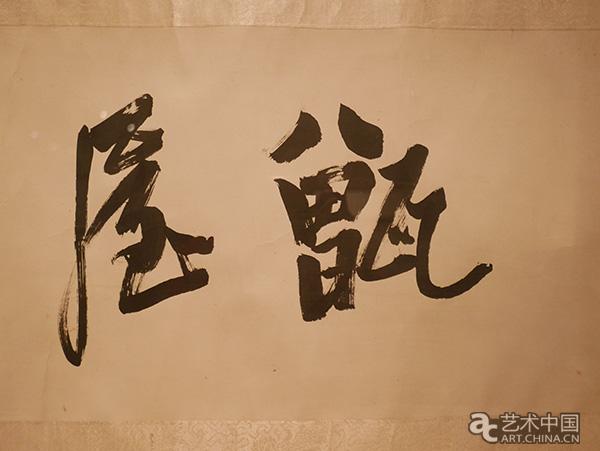 甑屋
ac 艺术中国
ART.CHINA.CN